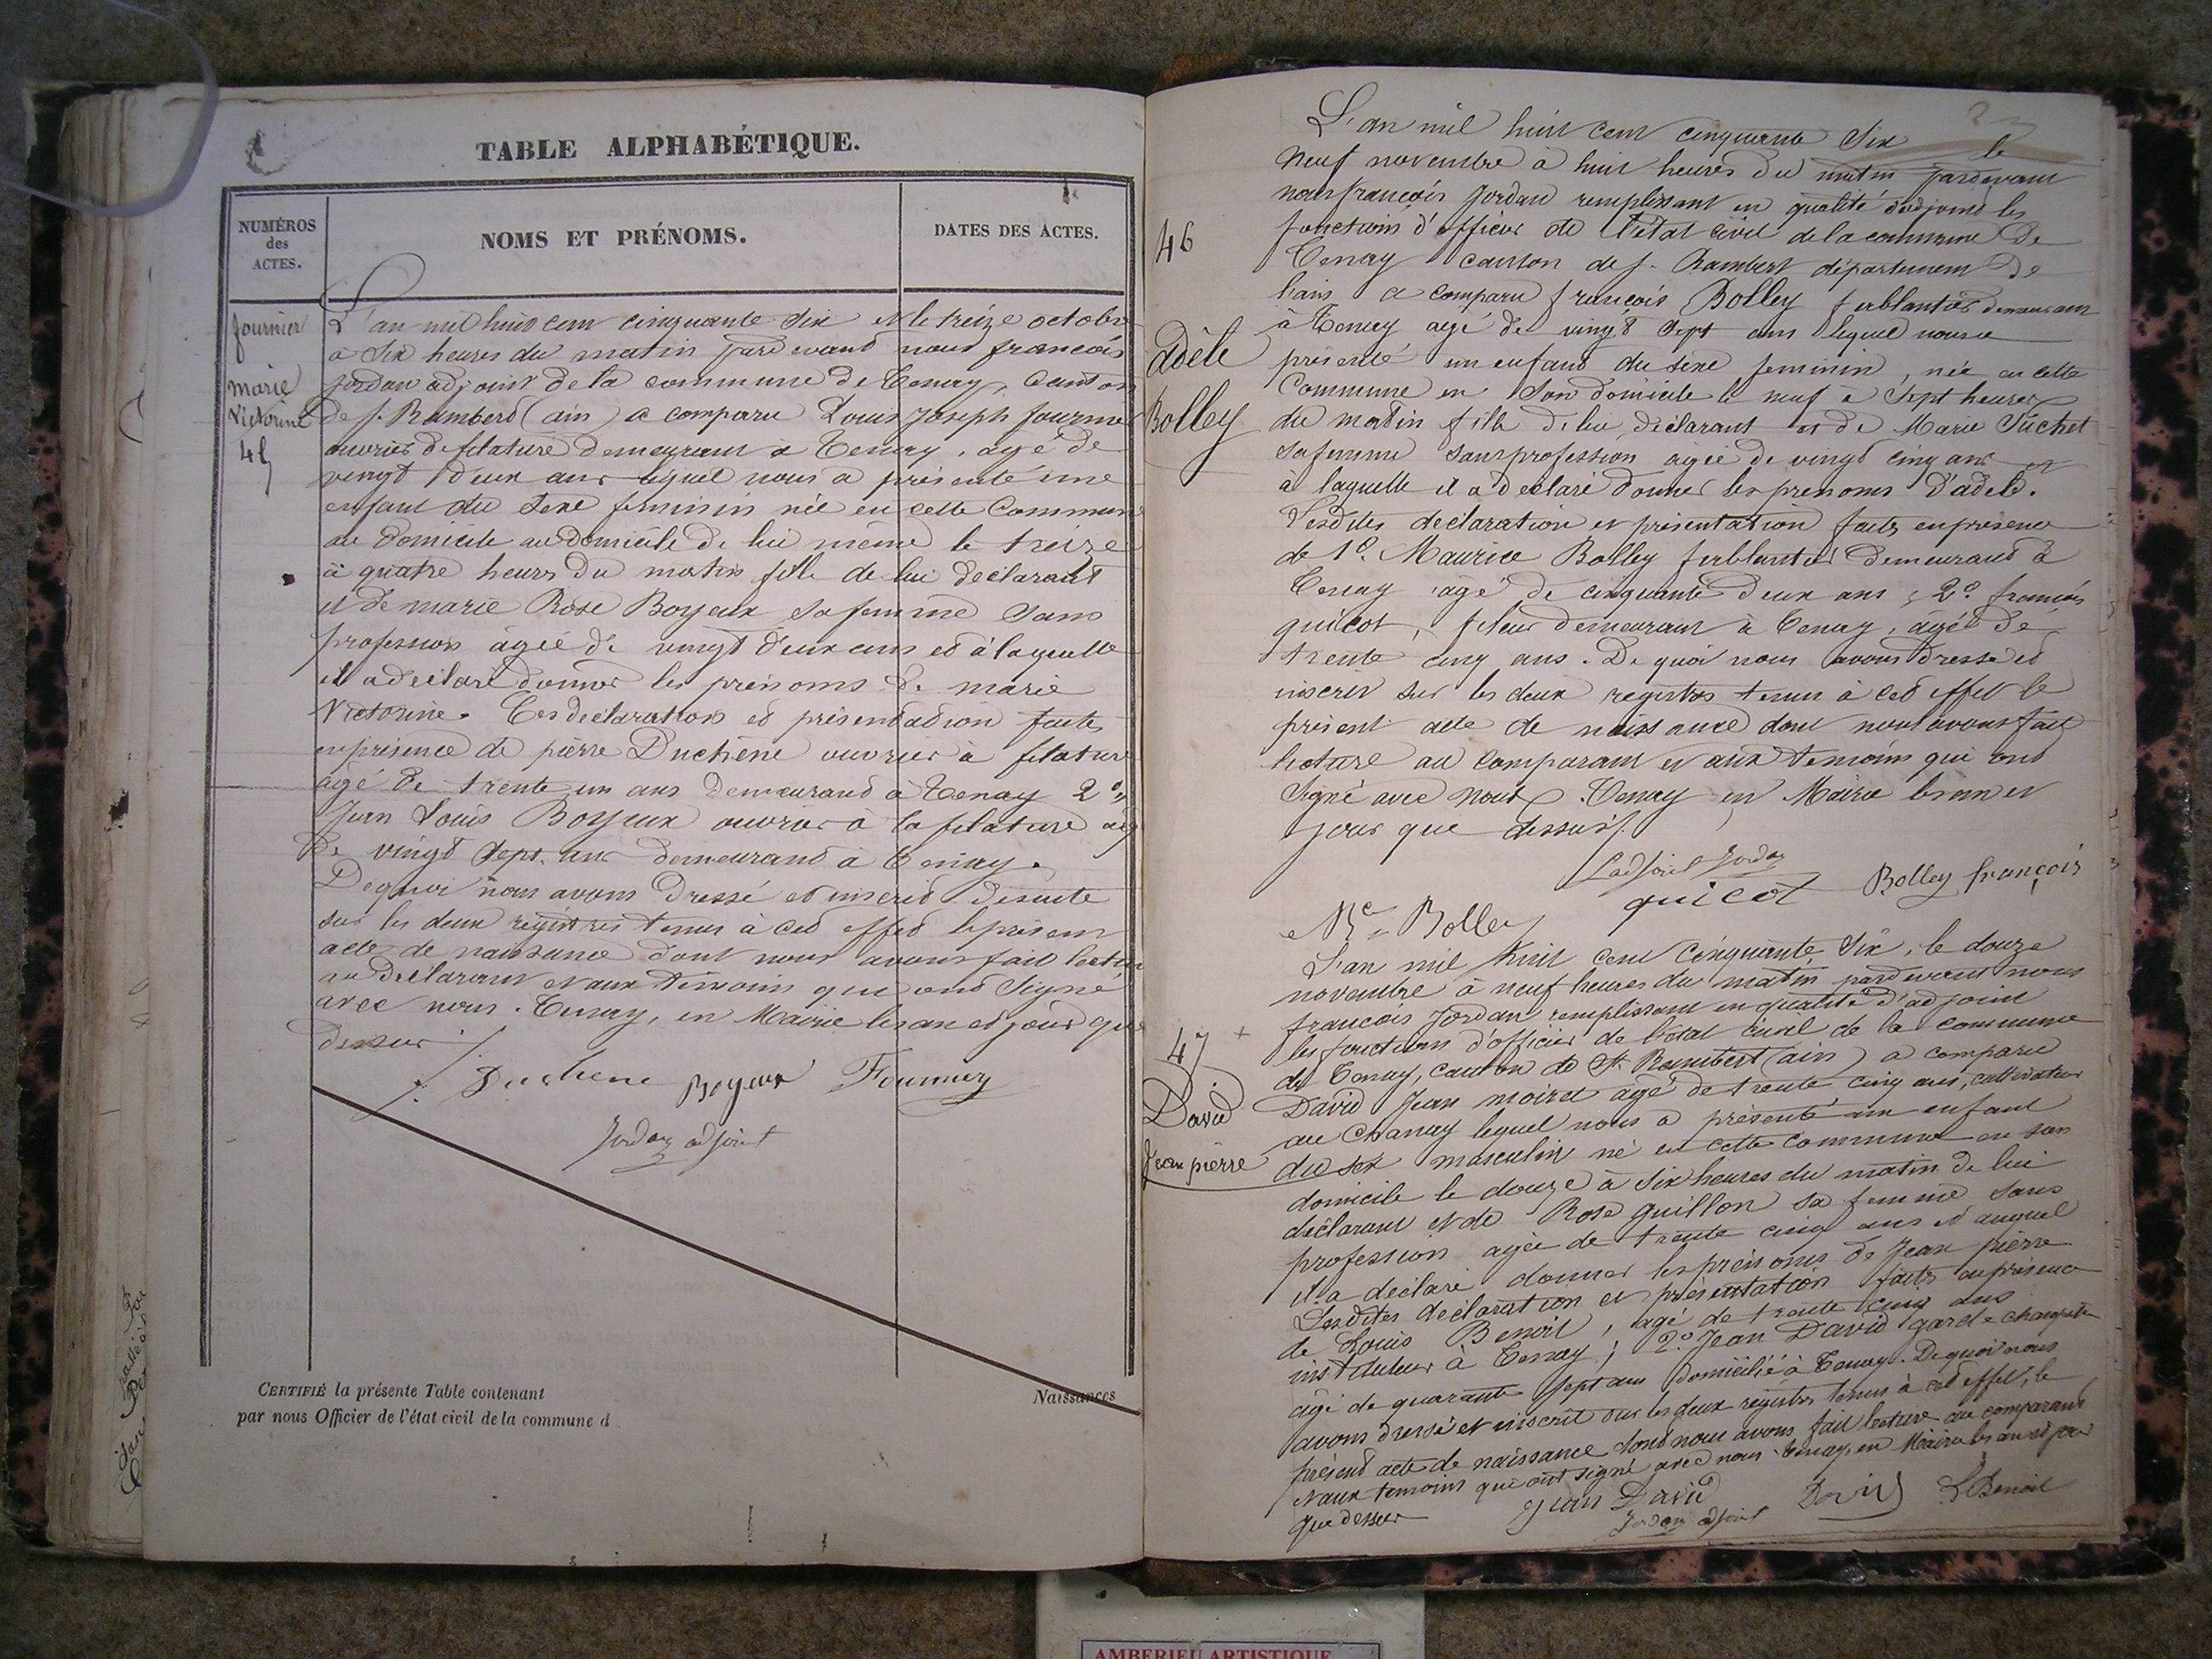 TABLE ALPHABÉTIQUE.
NUMÉROS
des
ACTES.
NOMS ET PRÉNOMS.
DATES DES ACTES.
fournier
marie
Victorine
45
L'an mil huit cent cinquante Six et le treize octobre
à Six heures du matin pardevant nous françois
jordan adjoint de la commune de Tenay, Canton
de St. Rambert (ain) a comparu Louis Joseph fournier
ouvrier de filature demeurant à Tenay, agé de
vingt deux ans lequel nous a présenté une
enfant du Sexe feminin née en cette Commune
au Domicile au domicile de lui même le treize
à quatre heures du matin fille de lui déclarant
et de marie Rose Boyeux sa femme sans
profession âgée de vingt deux ans et à laquelle
il a déclaré donner les prénoms de marie
Victorine. Ces déclaration et présentation faite
en présence de pierre Duchêne ouvrier à filature
agé de trente un ans demeurand à Tenay 2°
Jean Louis Boyeux ouvrier à la filature agé
De vingt Sept ans demeurand à Tenay.
De quoi nous avons dressé et inscrit desuite
sur les deux registres tenus à cet effet le présent
acte de naissance dont nous avons fait lecture
au Déclarant et aux témoins qui ont Signé
avec nous. Tenay, en Mairie les an et jour que
dessus
Duchene Boyeux Fournier
Jordan adjoint
CERTIFIÉ la présente Table contenant
Naissances
par nous Officier de l'état civil de la commune d
L'an mil huit cent cinquante Six le
neuf novembre à huit heures du matin pardevant
nous françois Jordan remplissant en qualité d'adjoint les
fonctions d'officier de l'état civil de la commune De
Tenay canton de St. Rambert département De
lain a comparu françois Bolley ferblantier demeurant
à Tenay agé de vingt Sept ans lequel nous a
présenté un enfant du sexe feminin, née en cette
Commune en Son domicile le neuf à Sept heures
du matin fille de lui déclarant et de Marie Suchet
sa femme sans profession agée de vingt cinq ans et
à laquelle il a déclaré donner les prenoms D'adele.
Lesdites déclaration et présentation faites en présence
de 1°. Maurice Bolley ferblantier demeurand à
Tenay agé de cinquante deux ans, 2°. françois
quicot, fileur demeurant à Tenay, âgé de
trente cinq ans. De quoi nous avons dressé et
inscrit sur les deux registres tenus à cet effet le
présent acte de naissance dont nous avons fait
lecture au comparant et aux temoins qui ont
Signé avec nous. Tenay en Mairie les an et
jour que dessus.
46
adèle
Bolley
L'adjoint Jordan
quicot
Bolley françois
Mce Bolley
L'an mil huit cent cinquante Six, le douze
novembre à neuf heures du matin pardevant nous
francois Jordan remplissant en qualité d'adjoint
les fonctions d'officier de l'état civil de la commune
de Tenay, canton de St. Rambert (ain) a comparu
David Jean moiret agé de trente cinq ans, cultivateur
au chanay lequel nous a présenté un enfant
du sex masculin né en cette commune en son
domicile le douze à Six heures du matin de lui
déclarant et de Rose guillon sa femme sans
profession agée de trente cinq ans et auquel
il a déclaré donner les prénoms de Jean pierre
Lesdites déclaration et présentation faites en présence
de Louis Benoit, agé de trente cinq ans
instituteur à Tenay; 2° Jean David garde champetre
âgé de quarante Sept ans domicilié à Tenay. De quoi nous
avons dressé et inscrit sur les deux registres tenus à cet effet, le
présend acte de naissance dond nous avons fait lecture au comparant
et aux temoins qui ont signé avec nous. Tenay, en Mairie les an et jour
que dessus
47
David
Jean pierre
Jean David
Jordan adjoint
David
L Benoit
AMBERIEU ARTISTIQUE